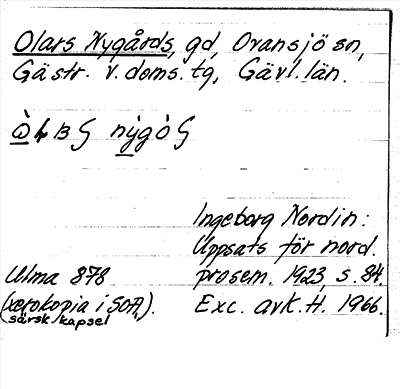 Olars Nygårds, gd, Ovansjö sn,
Gästr. v. doms. tg, Gävl. län.
nỳgò
Ingeborg Nordin:
Uppsats för nord.
Ulma 878 prosem. 1923, s. 84.
(xerokopia i SOA,). Exc. av K. H. 1966.
särsk. kapsel